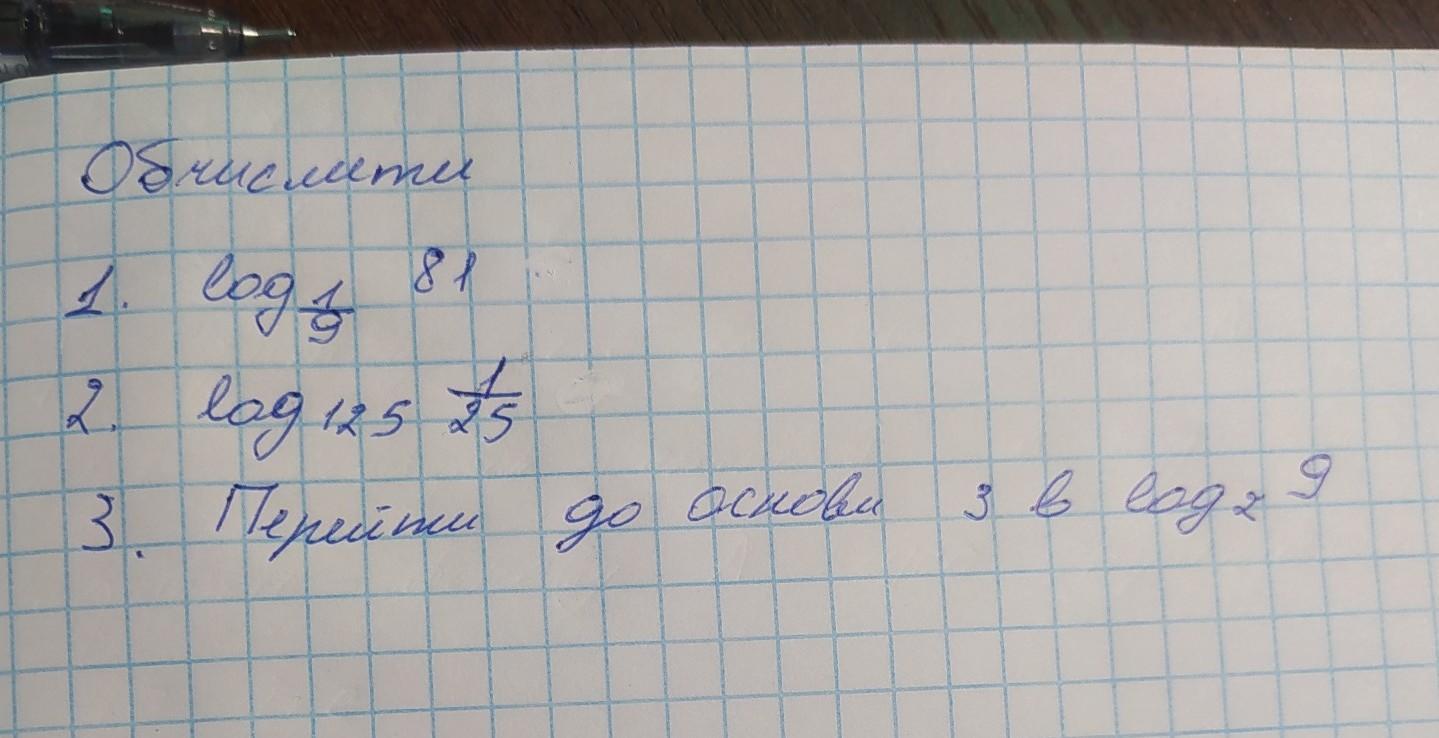 Обчислити
1. log 1/9 81
2. log 125 1/25
3. Перейти до основи 3 в log 2 9